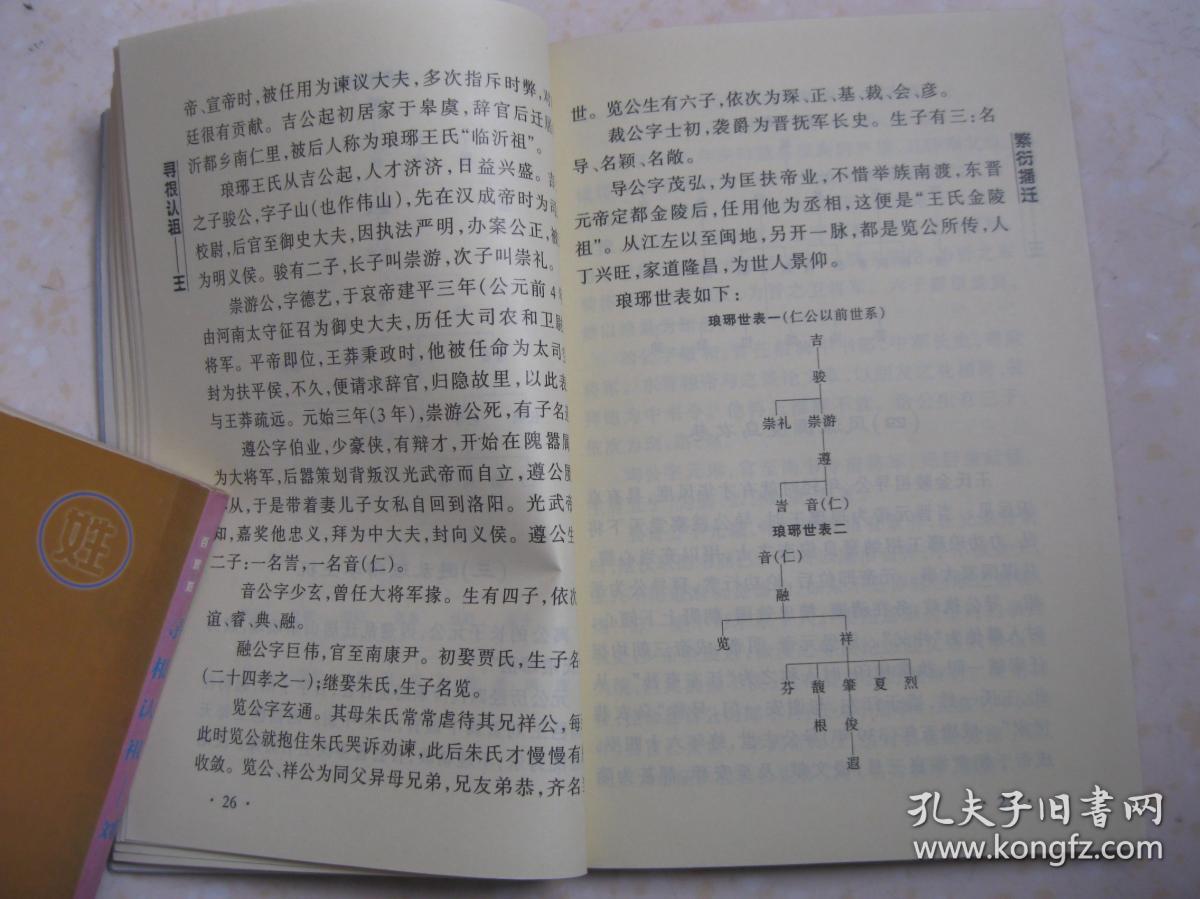 帝、宣帝时,被任用为谏议大夫,多次指斥时弊,对
廷很有贡献。吉公起初居家于皋虞,辞官后迁居
沂都乡南仁里,被后人称为琅琊王氏“临沂祖”。
琅琊王氏从吉公起,人才济济,日益兴盛。吉
之子骏公,字子山(也作伟山),先在汉成帝时为司
校尉,后官至御史大夫,因执法严明,办案公正,被
为明义侯。骏有二子,长子叫崇游,次子叫崇礼。
崇游公,字德艺,于哀帝建平三年(公元前4年
由河南太守征召为御史大夫,历任大司农和卫尉
将军。平帝即位,王莽秉政时,他被任命为太司空
封为扶平侯,不久,便请求辞官,归隐故里,以此表
与王莽疏远。元始三年(3年),崇游公死,有子名遵
遵公字伯业,少豪侠,有辩才,开始在隗嚣属
为大将军,后嚣策划背叛汉光武帝而自立,遵公
从,于是带着妻儿子女私自回到洛阳。光武帝
知,嘉奖他忠义,拜为中大夫,封向义侯。遵公生
二子:一名訔,一名音(仁)。
音公字少玄,曾任大将军掾。生有四子,依次
谊、睿、典、融。
融公字巨伟,官至南康尹。初娶贾氏,生子名
(二十四孝之一);继娶朱氏,生子名览。
览公字玄通。其母朱氏常常虐待其兄祥公,每
此时览公就抱住朱氏哭诉劝谏,此后朱氏才慢慢有
收敛。览公、祥公为同父异母兄弟,兄友弟恭,齐名
· 26 ·
寻根认祖——王
世。览公生有六子,依次为琛、正、基、裁、会、彦。
裁公字士初,袭爵为晋抚军长史。生子有三:名
导、名颖、名敞。
导公字茂弘,为匡扶帝业,不惜举族南渡,东晋
元帝定都金陵后,任用他为丞相,这便是“王氏金陵
祖”。从江左以至闽地,另开一脉,都是览公所传,人
丁兴旺,家道隆昌,为世人景仰。
琅琊世表如下:
琅琊世表一(仁公以前世系)
吉
骏
崇礼 崇游
遵
訔 音(仁)
琅琊世表二
音(仁)
融
览 祥
芬 馥 肇 夏 烈
根 俊
遐
繁衍播迁
三
姓
百家姓
寻根认祖
孔夫子旧书网
www.kongfz.com